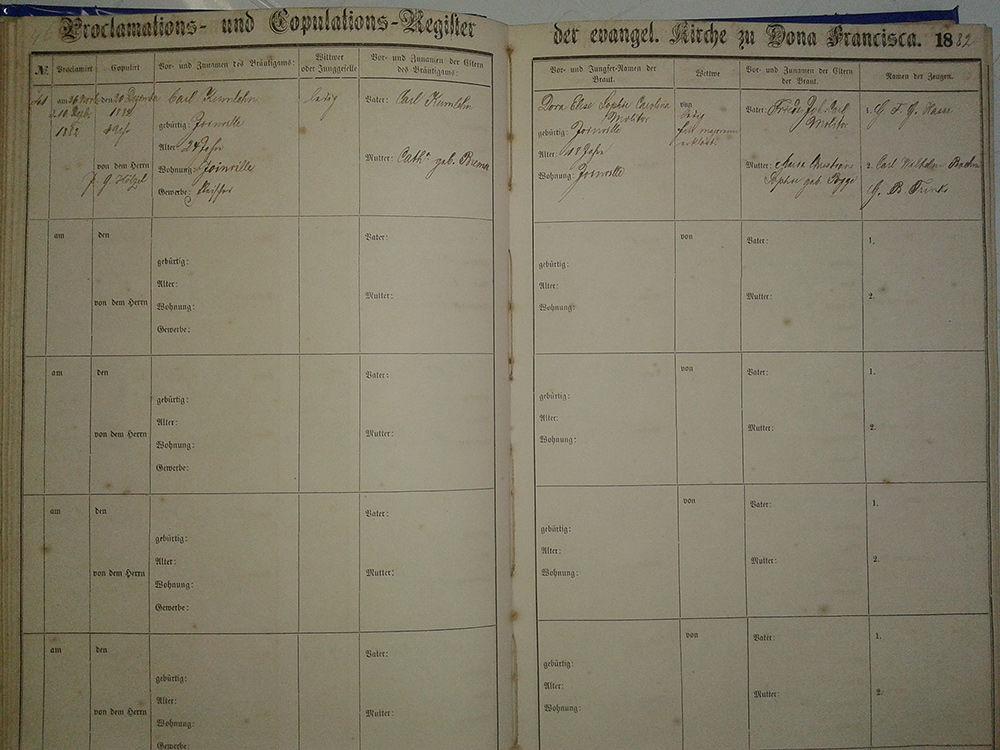 Proclamations- und Copulations-Register
der evangel. Kirche zu Dona Francisca. 1882
№
Proclamirt
Copulirt
Vor- und Zunamen des Bräutigams:
Wittwer
oder Junggeselle
Vor- und Zunamen der Eltern
des Bräutigams:
Vor- und Jungfer-Namen der
Braut.
Wittwe
Vor- und Zunamen der Eltern
der Braut.
Namen der Zeugen.
41
am 26 Novb
10 Dezbr
1882
den 20 Dezember
1882
von dem Herrn
J. G. Hölzel
Carl
gebürtig: Joinville
Alter 24 Jahr
Wohnung: Joinville
Gewerbe:
ledig
Vater: Carl
Mutter: Cath. geb.
Dora Elise Sophie Carolina
Molitor
gebürtig: Joinville
Alter: 18 Jahr
Wohnung: Joinville
von
ledig
Vater: Friedr. Joh. Carl
Molitor
Mutter: Maria
Sophie geb. Pogge
1. G. F. G. Hasse
2. Carl Wilhelm
G. B. Trinks
am
den
von dem Herrn
gebürtig:
Alter:
Wohnung:
Gewerbe:
Vater:
Mutter:
gebürtig:
Alter:
Wohnung:
von
Vater:
Mutter:
1.
2.
am
den
von dem Herrn
gebürtig:
Alter:
Wohnung:
Gewerbe:
Vater:
Mutter:
gebürtig:
Alter:
Wohnung:
von
Vater:
Mutter:
1.
2.
am
den
von dem Herrn
gebürtig:
Alter:
Wohnung:
Gewerbe:
Vater:
Mutter:
gebürtig:
Alter:
Wohnung:
von
Vater:
Mutter:
1.
2.
am
den
von dem Herrn
gebürtig:
Alter:
Wohnung:
Gewerbe:
Vater:
Mutter:
gebürtig:
Alter:
Wohnung:
von
Vater:
Mutter:
1.
2.